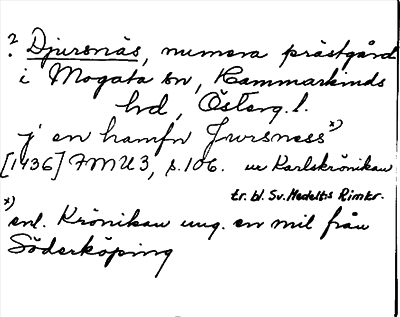 ? Djursnäs, numera prästgård
i Mogata sn, Hammarkinds
hrd, Österg. l.
j en hamfn Jwrsness x)
[1436] FMU 3, s. 106. ur Karlskrönikan
tr. bl. Sv. Medeltis Rimkr.
x)
enl. Krönikan ung. en mil från
Söderköping